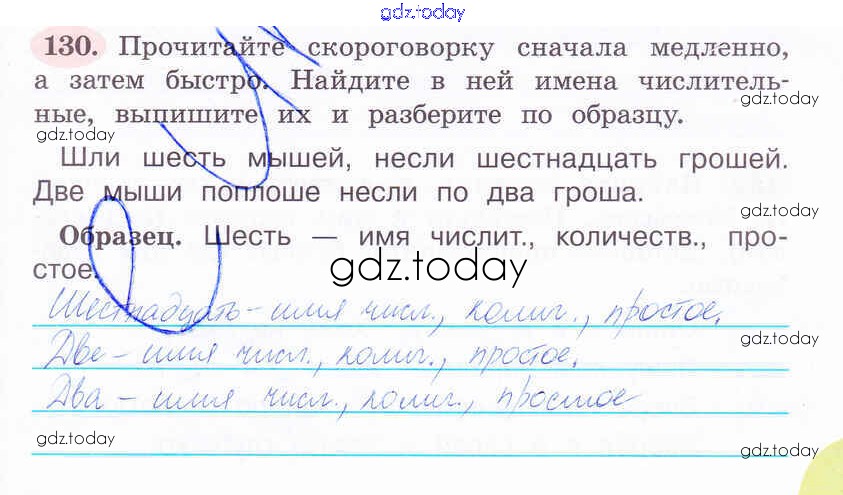 gdz.today
130. Прочитайте скороговорку сначала медленно,
а затем быстро. Найдите в ней имена числитель-
gdz.today
ные, выпишите их и разберите по образцу.
gdz.today
Шли шесть мышей, несли шестнадцать грошей.
Две мыши поплоше несли по два гроша.
gdz.today
gdz.today
Образец. Шесть — имя числит., количеств., про-
стое.
gdz.today
Шестнадцать - имя числ., колич., простое.
gdz.today
Две - имя числ., колич., простое.
Два - имя числ., колич., простое
gdz.today
gdz.today